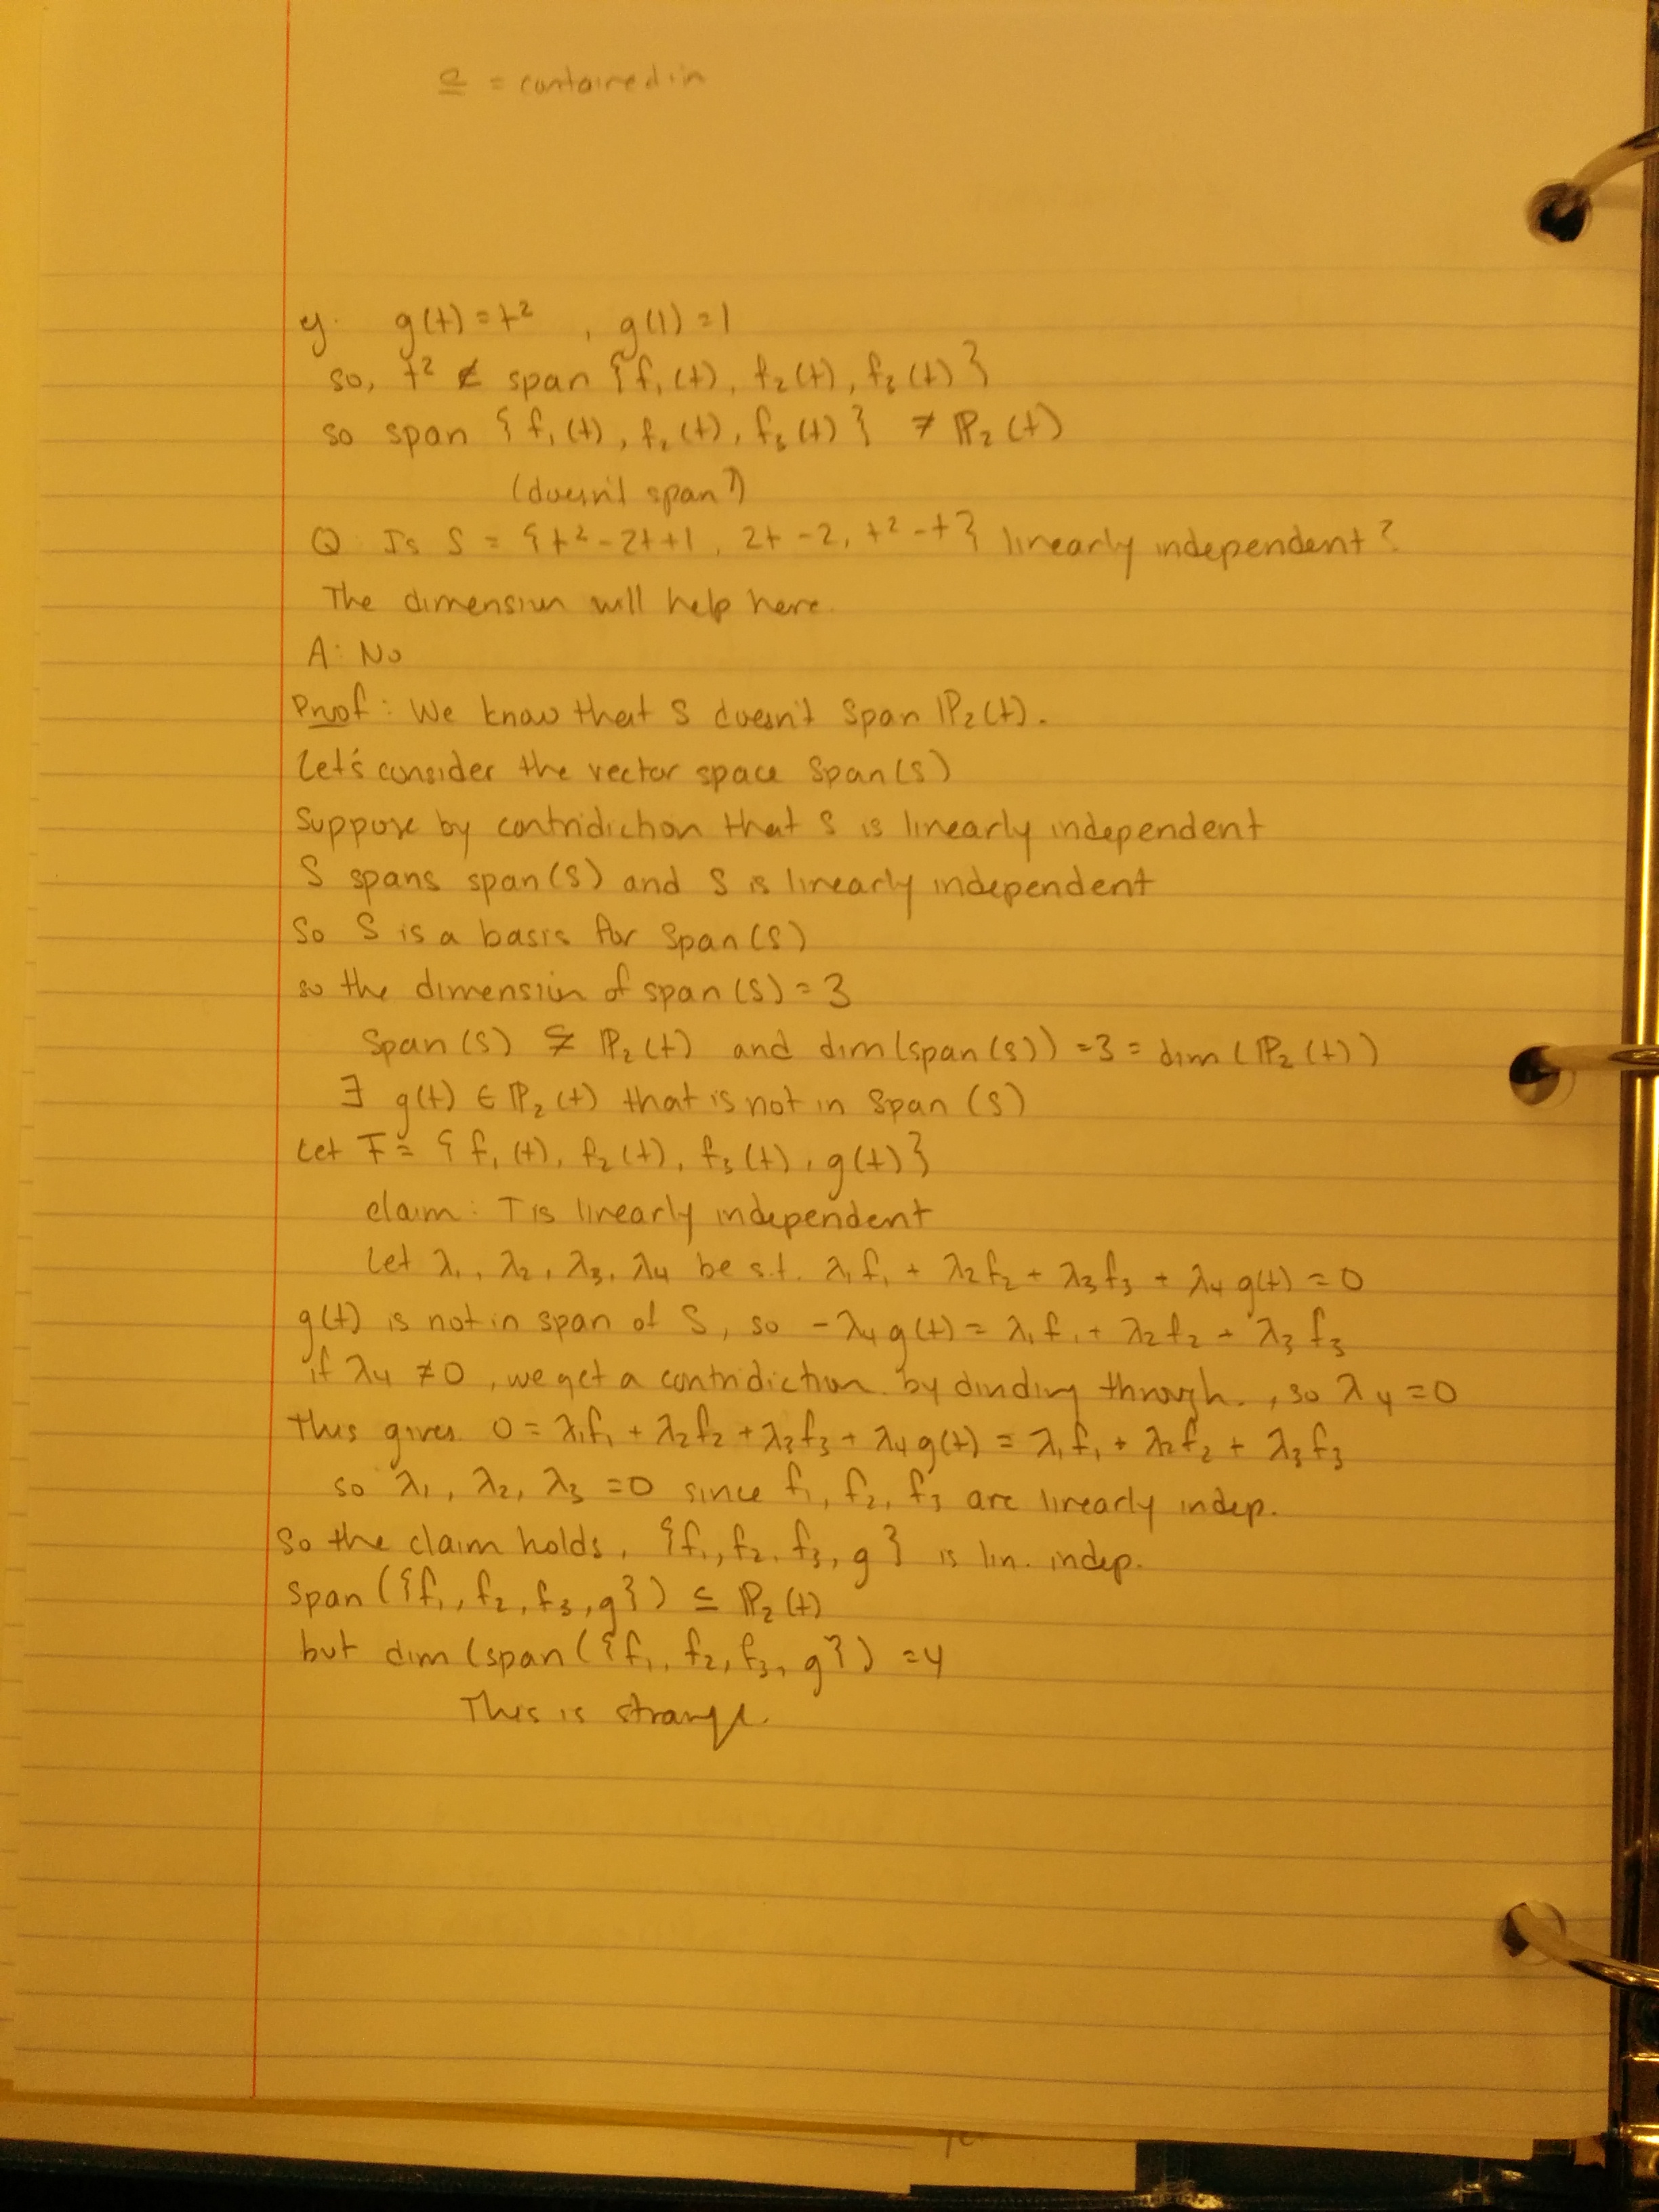 ⊆ = contained in
eg. g(t) = t², g(1) = 1
so, t² ∉ span {f₁(t), f₂(t), f₃(t)}
so span {f₁(t), f₂(t), f₃(t)} ≠ ℙ₂(t)
(doesn't span?)
Q: Is S = {t²-2t+1, 2t-2, t²-t} linearly independent?
The dimension will help here.
A: No
Proof: We know that S doesn't span ℙ₂(t).
Let's consider the vector space Span(S)
Suppose by contridiction that S is linearly independent
S spans span(S) and S is linearly independent
So S is a basis for Span(S)
so the dimension of span(S) = 3
Span(S) ⊊ ℙ₂(t) and dim(span(S)) = 3 = dim(ℙ₂(t))
∃ g(t) ∈ ℙ₂(t) that is not in Span(S)
Let T = {f₁(t), f₂(t), f₃(t), g(t)}
claim: T is linearly independent
Let λ₁, λ₂, λ₃, λ₄ be s.t. λ₁f₁ + λ₂f₂ + λ₃f₃ + λ₄g(t) = 0
g(t) is not in span of S, so -λ₄g(t) = λ₁f₁ + λ₂f₂ + λ₃f₃
if λ₄ ≠ 0, we get a contridiction by dividing through, so λ₄ = 0
This gives 0 = λ₁f₁ + λ₂f₂ + λ₃f₃ + λ₄g(t) = λ₁f₁ + λ₂f₂ + λ₃f₃
so λ₁, λ₂, λ₃ = 0 since f₁, f₂, f₃ are linearly indep.
So the claim holds. {f₁, f₂, f₃, g} is lin. indep.
Span({f₁, f₂, f₃, g}) ⊆ ℙ₂(t)
but dim(span({f₁, f₂, f₃, g}) = 4
This is strange.